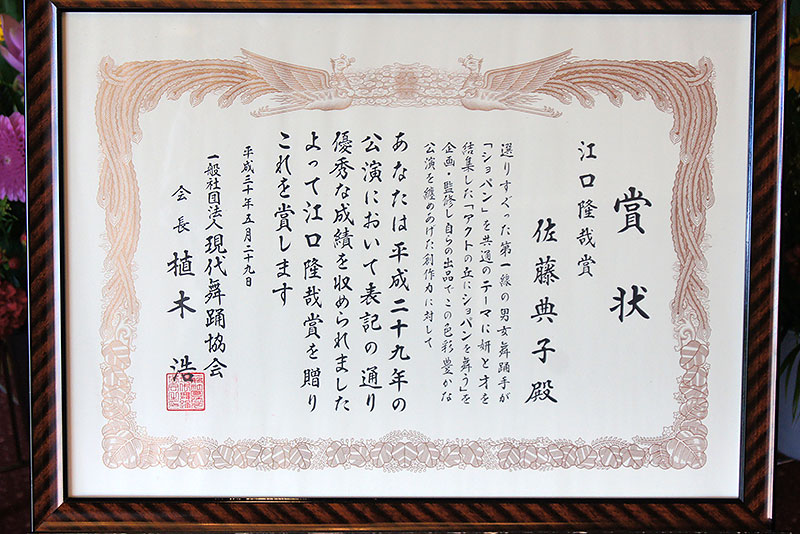 賞状
江口隆哉賞
佐藤典子殿
選りすぐった第一線の男女舞踊手が
「ショパン」を共通のテーマに妍と才を
結集した「アクトの丘にショパンを舞う」を
企画・監修し自らの出品でこの色彩豊かな
公演を纏めあげた創作力に対して
あなたは平成二十九年の
公演において表記の通り
優秀な成績を収められました
よって江口隆哉賞を贈り
これを賞します
平成三十年五月二十九日
一般社団法人現代舞踊協会
会長 植木浩